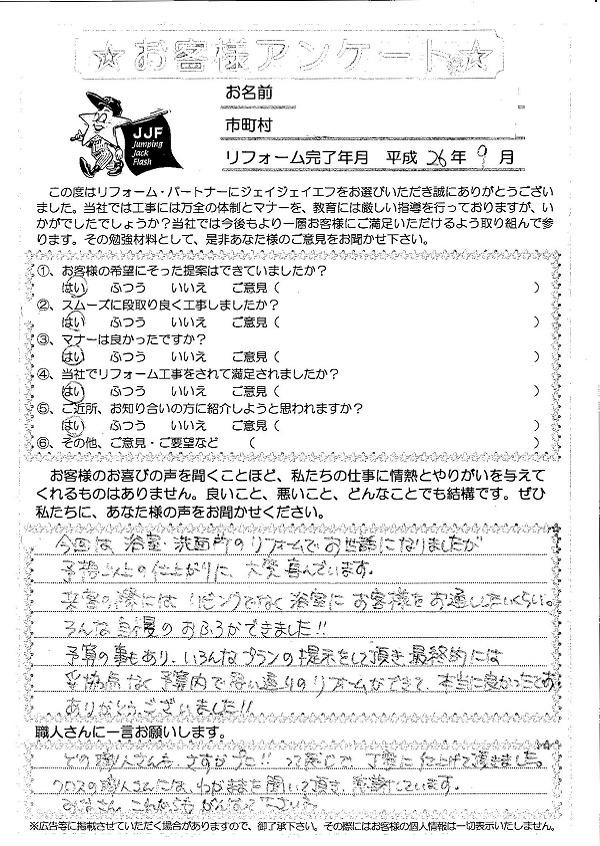 ☆お客様アンケート☆
JJF
Jumping
Jack
Flash
お名前
市町村
リフォーム完了年月 平成 26 年 9 月
この度はリフォーム・パートナーにジェイジェイエフをお選びいただき誠にありがとうござい
ました。当社では工事には万全の体制とマナーを、教育には厳しい指導を行っておりますが、い
かがでしたでしょうか？当社では今後もより一層お客様にご満足いただけるよう取り組んで参
ります。その勉強材料として、是非あなた様のご意見をお聞かせ下さい。
①、お客様の希望にそった提案はできていましたか？
はい ふつう いいえ ご意見（ ）
②、スムーズに段取り良く工事しましたか？
はい ふつう いいえ ご意見（ ）
③、マナーは良かったですか？
はい ふつう いいえ ご意見（ ）
④、当社でリフォーム工事をされて満足されましたか？
はい ふつう いいえ ご意見（ ）
⑤、ご近所、お知り合いの方に紹介しようと思われますか？
はい ふつう いいえ ご意見（ ）
⑥、その他、ご意見・ご要望など （ ）
お客様のお喜びの声を聞くことほど、私たちの仕事に情熱とやりがいを与えて
くれるものはありません。良いこと、悪いこと、どんなことでも結構です。ぜひ
私たちに、あなた様の声をお聞かせください。
今回は 浴室 洗面所のリフォームでお世話になりましたが
予想以上の仕上がりに、大変喜んでいます。
来客の際には リビングでなく 浴室に お客様をお通ししたいくらい。
そんな自慢の おふろができました!!
予算の事もあり、いろんなプランの提示をして頂き 最終的には
妥協点なく 予算内で思い通りの リフォームができて、本当に良かったです
ありがとうございました!!
職人さんに一言お願いします。
どの職人さんも、さすがプロ!! って感じで、丁寧に仕上げて頂きました。
クロスの職人さんには、わがままを聞いて頂き、感謝しています。
みなさん、これからも がんばって下さい
※広告等に掲載させていただく場合がありますので、御了承下さい。その際にはお客様の個人情報は一切表示いたしません。